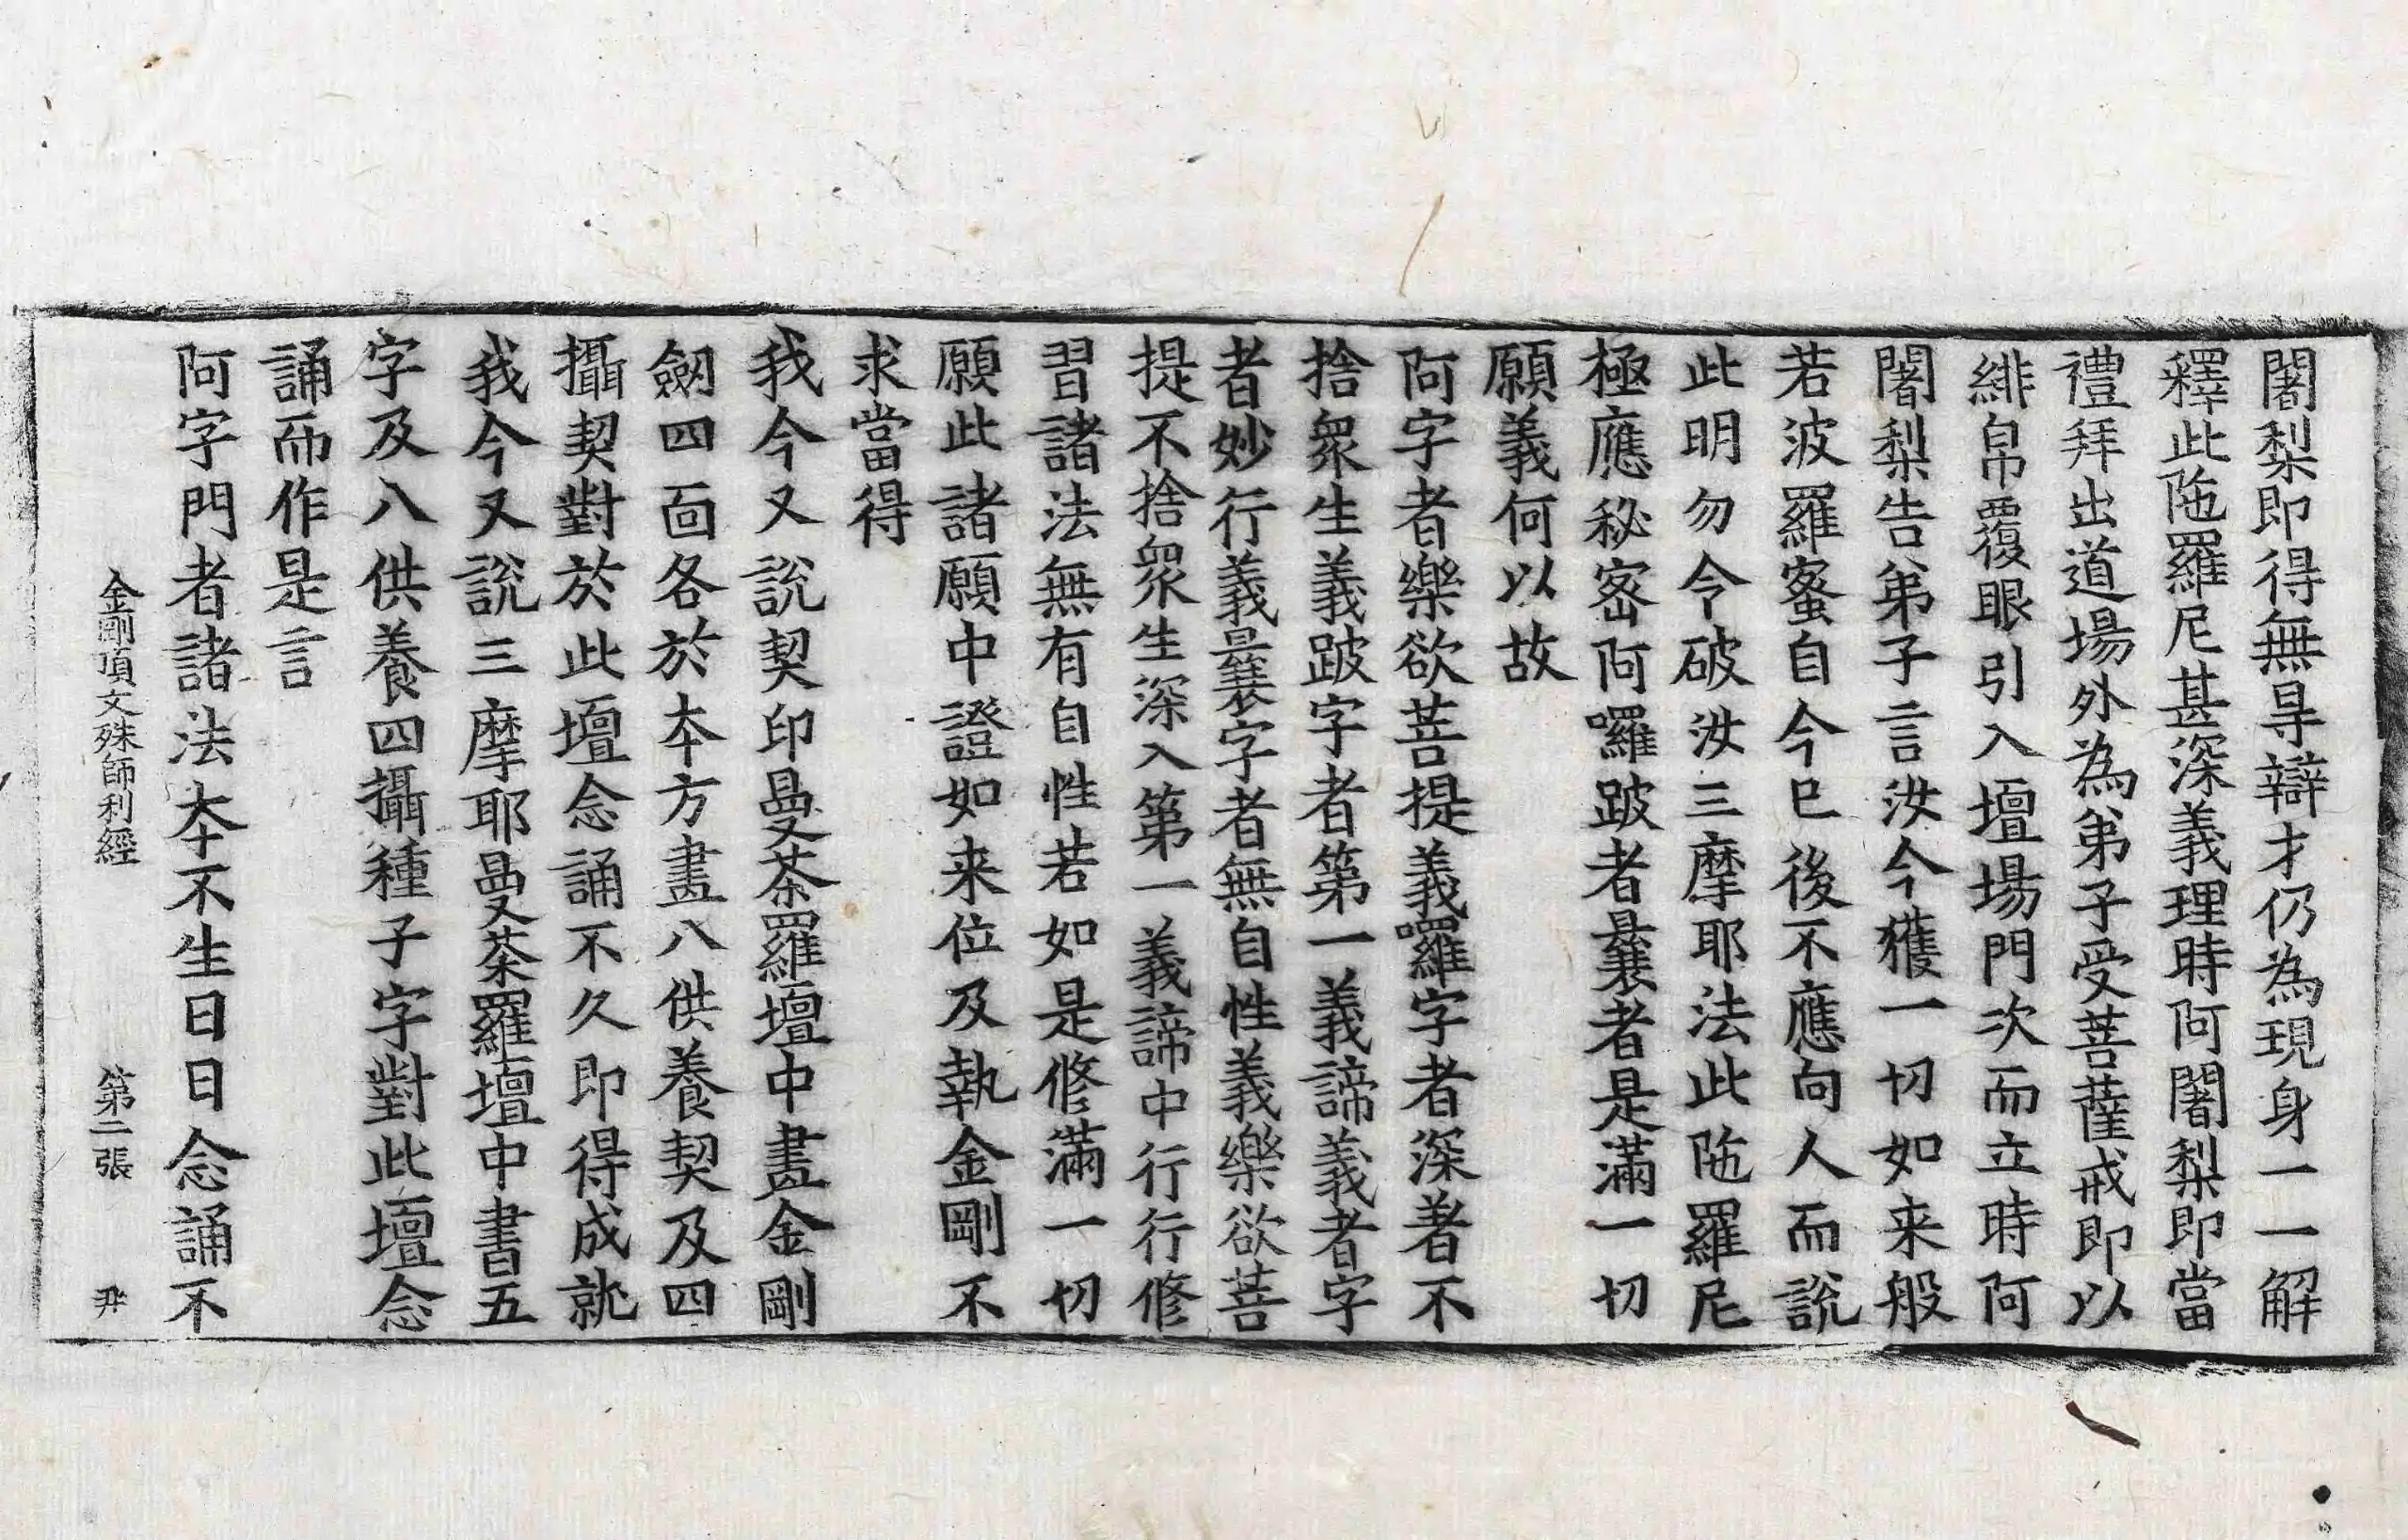 闍梨即得無㝵辯才仍為現身一一解
釋此陁羅尼甚深義理時阿闍梨即當
禮拜出道場外為弟子受菩薩戒即以
緋帛覆眼引入壇場門次而立時阿
闍梨告弟子言汝今獲一切如来般
若波羅蜜自今已後不應向人而說
此明勿令破汝三摩耶法此陁羅尼
極應秘密阿囉跛者曩者是滿一切
願義何以故
阿字者樂欲菩提義囉字者深著不
捨衆生義跛字者第一義諦義者字
者妙行義曩字者無自性義樂欲菩
提不捨衆生深入第一義諦中行行修
習諸法無有自性若如是修滿一切
願此諸願中證如来位及執金剛不
求當得
我今又說契印曼荼羅壇中畫金剛
劒四面各於本方畫八供養契及四
攝契對於此壇念誦不久即得成就
我今又說三摩耶曼荼羅壇中書五
字及八供養四攝種子字對此壇念
誦而作是言
阿字門者諸法本不生日日念誦不
金剛頂文殊師利經 第二張 尹